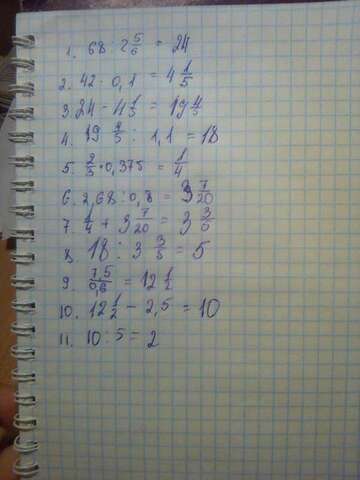 1. 68 : 2 5/6 = 24
2. 42 · 0,1 = 4 1/5
3. 24 - 4 1/5 = 19 4/5
4. 19 4/5 : 1,1 = 18
5. 2/3 · 0,375 = 1/4
6. 2,68 : 0,8 = 3 7/20
7. 1/4 + 3 7/20 = 3 3/5
8. 18 : 3 3/5 = 5
9. 7,5/0,6 = 12 1/2
10. 12 1/2 - 2,5 = 10
11. 10 : 5 = 2